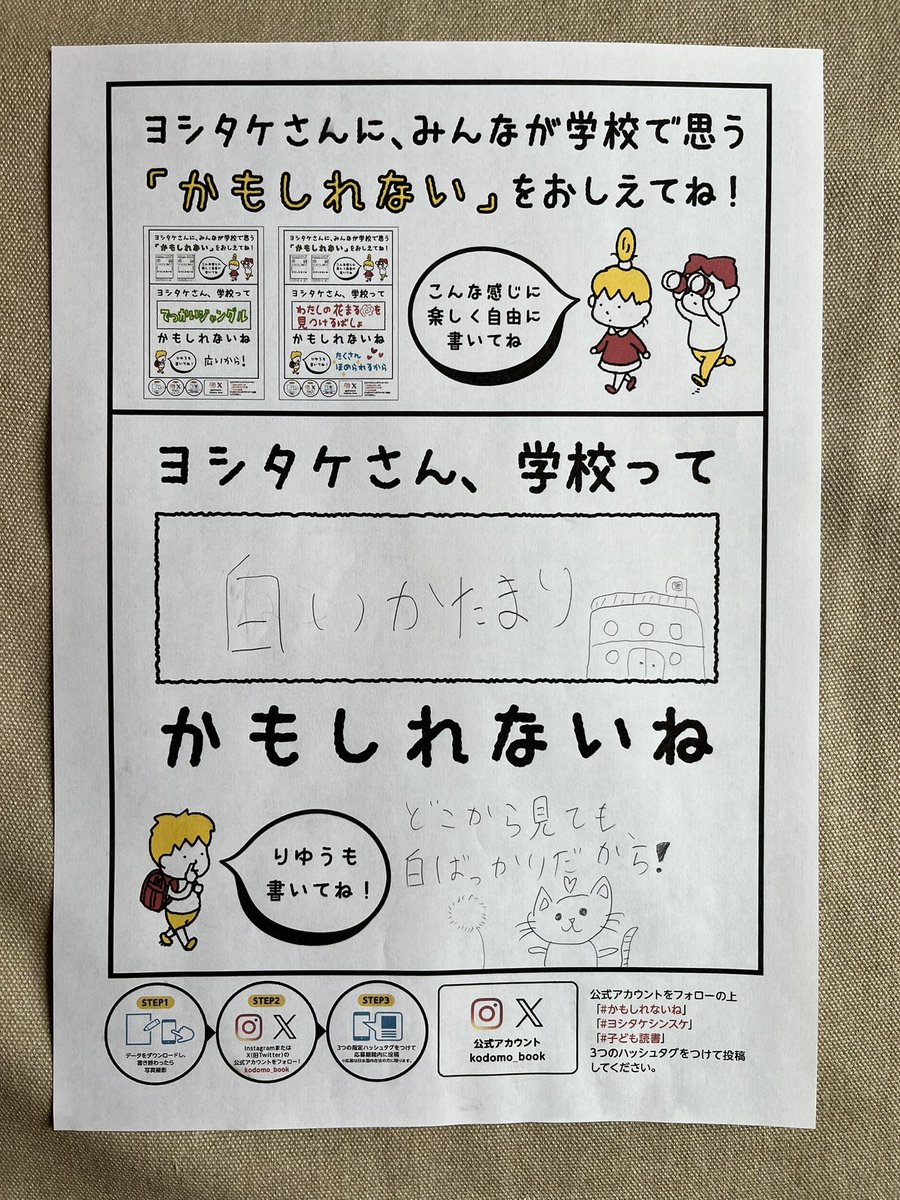 ヨシタケさんに、みんなが学校で思う
「かもしれない」をおしえてね！
ヨシタケさんに、みんなが学校で思う
「かもしれない」をおしえてね！
ヨシタケさん、学校って
でっかいジャングル
かもしれないね
りゆうも
書いてね！
広いから！
ヨシタケさんに、みんなが学校で思う
「かもしれない」をおしえてね！
ヨシタケさん、学校って
わたしの花まるを
見つけるばしょ
かもしれないね
りゆうも
書いてね！
たくさん
ほめられるから
こんな感じに
楽しく自由に
書いてね
ヨシタケさん、学校って
白いかたまり
かもしれないね
りゆうも
書いてね！
どこから見ても、
白ばっかりだから!
STEP1
データをダウンロードし、
書き終わったら
写真撮影
STEP2
Instagramまたは
X(旧Twitter)の
公式アカウントをフォロー！
kodomo_book
STEP3
3つの指定ハッシュタグをつけて
応募期間内に投稿
※応募は日本国内在住の方に限ります。
公式アカウント
kodomo_book
公式アカウントをフォローの上
「#かもしれないね」
「#ヨシタケシンスケ」
「#子ども読書」
3つのハッシュタグをつけて投稿
してください。